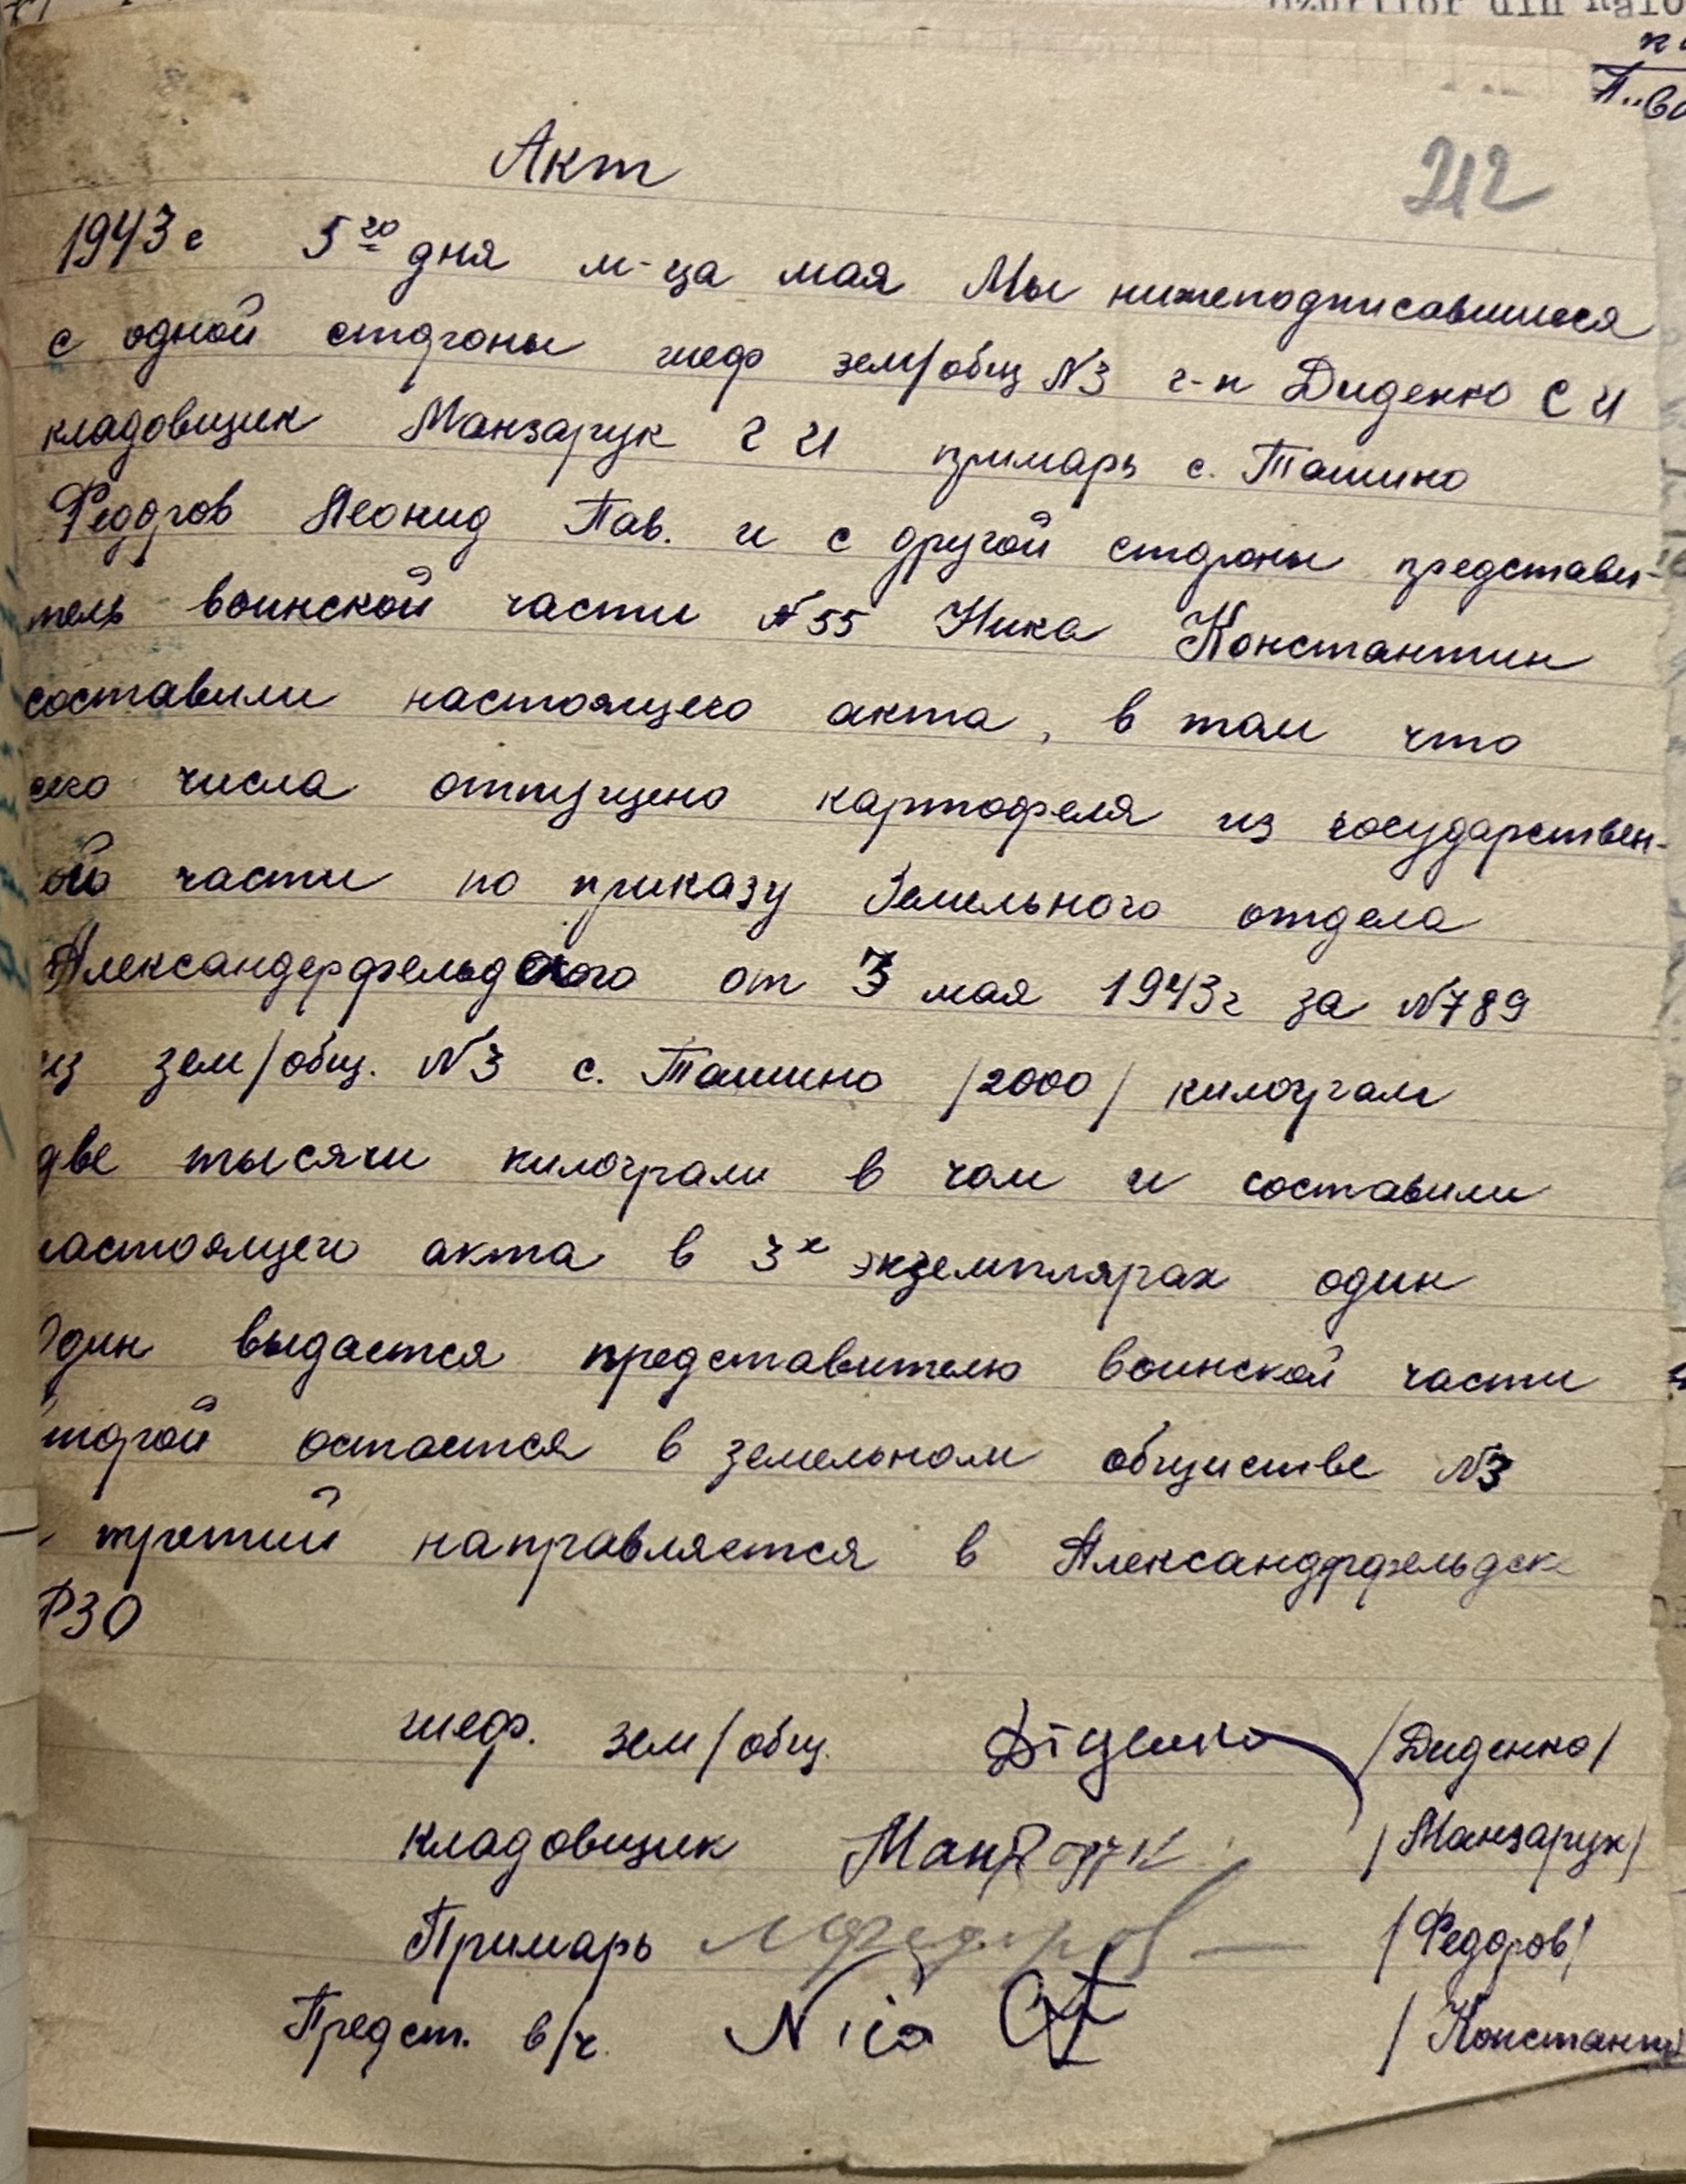 212
Акт
1943 г 5го дня м-ца мая Мы нижеподписавшиеся
с одной стороны шеф зем/общ N3 г-н Диденко С И
кладовщик Манзарук Г И примарь с. Ташино
Федоров Леонид Пав. и с другой стороны представи-
тель воинской части №55 Ника Константин
составили настоящего акта, в том что
сего числа отпущено картофеля из государствен-
ой части по приказу Земельного отдела
Александерфельдского от 3 мая 1943г за N789
из зем/общ. N3 с. Ташино /2000/ килограм
две тысячи килограм в чом и составили
настоящего акта в 3х экземплярах один
Один выдается представителю воинской части
второй остается в земельном обществе N3
третий направляется в Александрфельдске
РЗО
шеф. зем/общ. Діденко /Диденко/
Кладовщик Манзарук /Манзарук/
Примарь Л Федоров /Федоров/
Предст. в/ч. Nica Ct /Константин